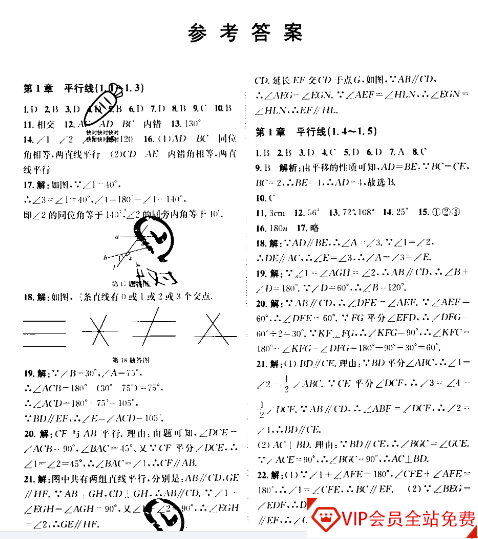 参考答案
第1章 平行线(1.1~1.3)
1.D 2.B 3.D 5.B 6.D 7.D 8.B 9.C 10.B
11.相交 12. AD BC 内错 13.130°
14.∠1 ∠2 120 16.(1)AD BC 同位
角相等,两直线平行 (2)CD AE 内错角相等,两直
线平行
17.解:如图,∵∠1=40°,
∴∠3=∠1=40°,∠4=180°-∠1=140°,
即∠2的同位角等于140°,∠2的同旁内角等于40°.
第17题答图
18.解:如图,三条直线有0或1或2或3个交点.
第18题答图
19.解:∵∠B=30°,∠A=75°,
∴∠ACB=180°-(30°+75°)=75°,
∴∠ACD=180°-75°=105°,
∵BD∥EF,∴∠E=∠ACD=105°.
20.解:CF与AB平行.理由:由题可知,∠DCE=
∠ACB=90°,∠BAC=45°,又∵CF平分∠DCE,∴
∠1=∠2=45°,∴∠BAC=∠1,∴CF∥AB.
21.解:图中共有两组直线平行,分别是:AB∥CD,GE
∥HF.∵AB⊥GH,CD⊥GH,∴AB∥CD,∵∠1=
∠EGH=∠AGH=90°,又 90°,∴∠EGH
=∠2,∴GE∥HF.
CD.延长EF交CD于点G,如图,∵AB∥CD,
∴∠AEG=∠EGN.∵∠AEF=∠HLN,∴∠EGN=
∠HLN,∴EF∥HL.
第1章 平行线(1.4~1.5)
1.B 2.B 3.D 4.C 5.D 6.D 7.A 8.C
9.B 解析:由平移的性质可知,AD=BE,∵BC=CE,
BC=2,∴BE=4,∴AD=4,故选B.
10.C
11.3cm 12.56° 13.72°,108° 14.25° 15.①②③
16.180n 17.略
18.解:∵AD∥BE,∴∠A=∠3.∵∠1=∠2,
∴DE∥AC,∴∠E=∠3,∴∠A=∠3=∠E.
19.解:∵∠1=∠AGH=∠2,∴AB∥CD,∴∠B+
∠D=180°,∵∠D=60°,∴∠B=120°.
20.解:∵AB∥CD,∴∠DFE=∠AEF,∵∠AEF=
60°,∴∠DFE=60°.∵FG平分∠EFD,∴∠DFG=
60°÷2=30°.∵KF⊥FG,∴∠KFG=90°,∴∠KFC=
180°-∠KFG-∠DFG=180°-90°-30°=60°.
21.解:(1)BD∥CE.理由:∵BD平分∠ABC,∴∠1=
∠2=1/2∠ABC.∵CE平分∠DCF,∴∠3=∠4=
1/2∠DCF.∵AB∥CD,∴∠ABF=∠DCF,∴∠2=
∠4,∴BD∥CE.
(2)AC⊥BD.理由:∵BD∥CE,∴∠BGC=∠GCE.
∵∠ACE=90°,∴∠BGC=90°,∴AC⊥BD.
22.解:(1)∵∠1+∠AFE=180°,∠CFE+∠AFE=
180°,∴∠1=∠CFE,∴BC∥EF. (2)∵∠BEG=
∠EDF,∴D
∥EF,∴∠C
VIP会员全站免费